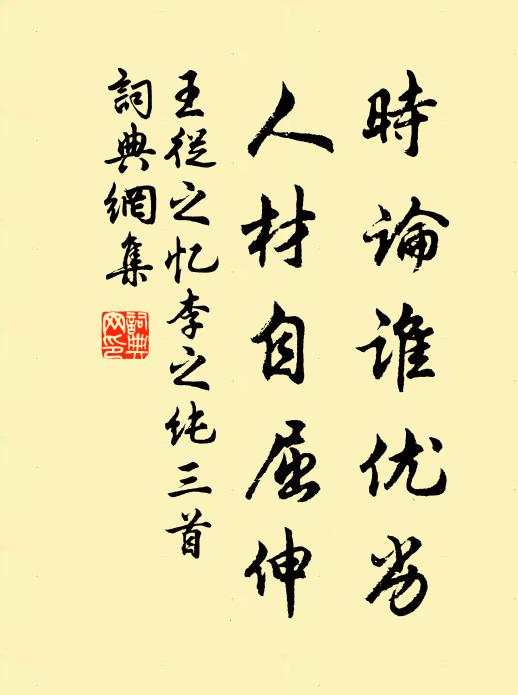 時論誰优劣
人材自屈伸
王從之忆李之纯三首
詞典網集
詞典網印